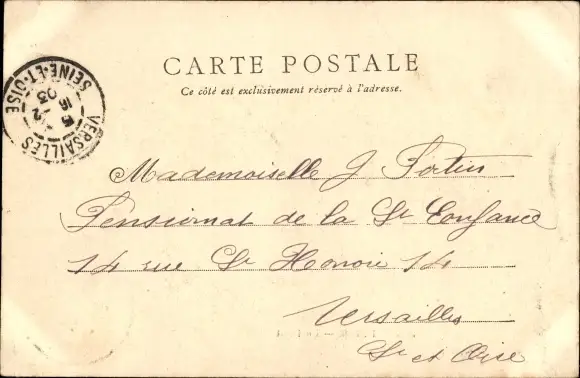 CARTE POSTALE
Ce côté est exclusivement réservé à l'adresse.
VERSAILLES
SEINE-ET-OISE
15
03
Mademoiselle J
Pensionnat de la Ste Enfance
14 rue St Honoré 14
Versailles
S. et Oise